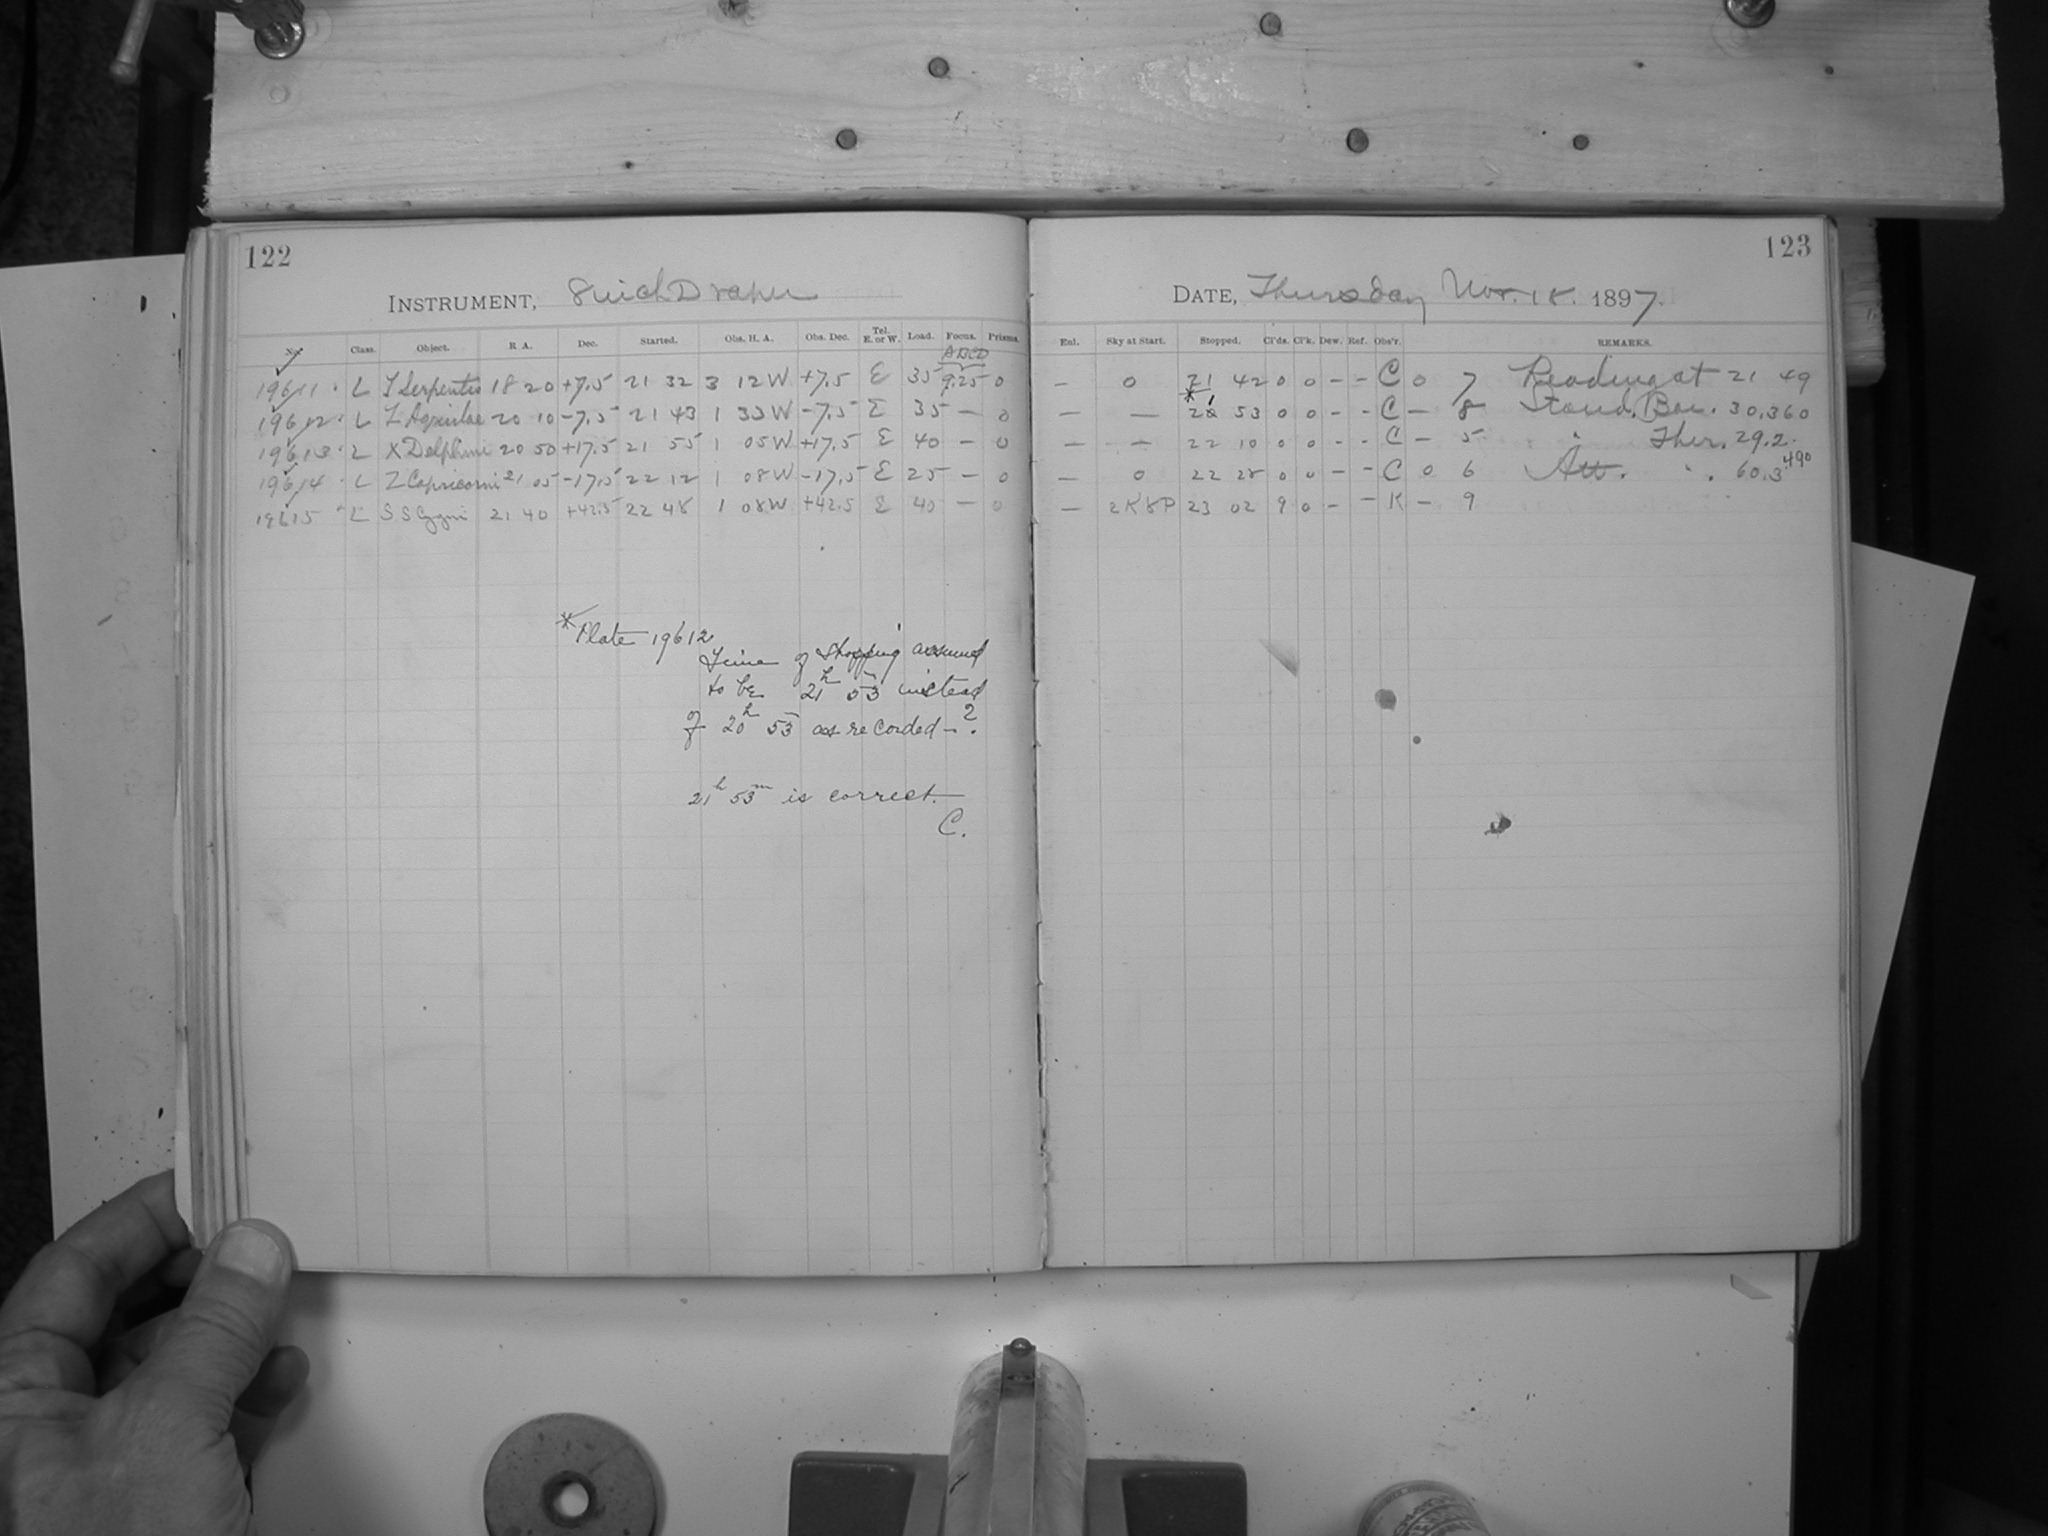 122
INSTRUMENT, 8 inch Draper
No. Class. Object. R A. Dec. Started. Obs. H. A. Obs. Dec. Tel. E. or W. Load. Focus. Prisms.
ABCD
19611 L T Serpentis 18 20 +7.5 21 32 3 12 W +7.5 E 35 9.25 0
19612 L Z Aquilae 20 10 -7.5 21 43 1 33 W -7.5 E 35 — 0
19613 L X Delphini 20 50 +17.5 21 55 1 05 W +17.5 E 40 — 0
19614 L Z Capricorni 21 05 -17.5 22 12 1 08 W -17.5 E 25 — 0
19615 L S S Cygni 21 40 +42.5 22 48 1 08 W +42.5 E 40 — 0
* Plate 19612
Time of stopping assumed
to be 21h 53m instead
of 20h 53m as recorded —?
21h 53m is correct.
C.
123
DATE, Thursday Nov. 18. 1897.
Enl. Sky at Start. Stopped. Cl'ds. Cl'k. Dew. Ref. Obs'r. REMARKS.
— 0 21 42 0 0 - - C 0 7 Reading at 21 49
— — * 53 0 0 - - C — 8 Stand. Bar. 30.360
— — 22 10 0 0 - - C — 5 " Ther. 29.2
— 0 22 28 0 0 - - C 0 6 Att. " 60.3 .490
— 2K8P 23 02 9 0 - - K — 9